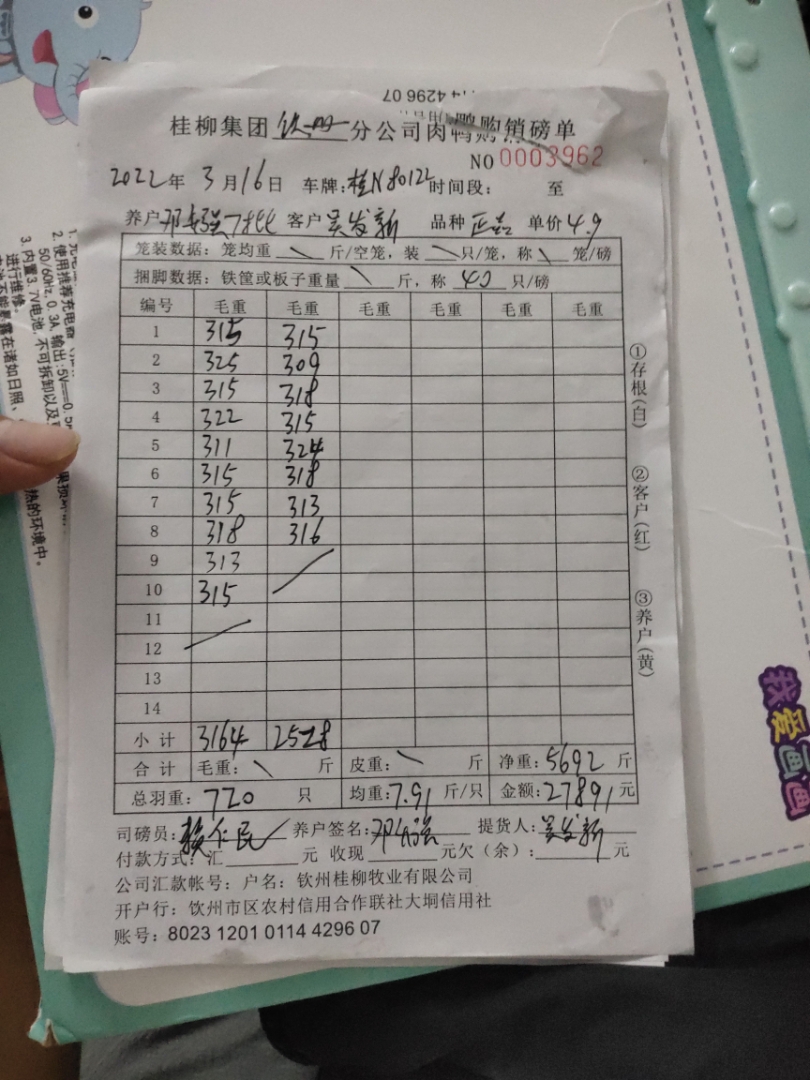 桂柳集团 钦州 分公司肉鸭购销磅单
NO 0003962
2022年 3月16日 车牌:桂N80122 时间段: 至
养户 客户 吴发新 品种 正品 单价 4.9
笼装数据: 笼均重 \ 斤/空笼, 装 \ 只/笼, 称 \ 笼/磅
捆脚数据: 铁筐或板子重量 \ 斤, 称 40 只/磅
编号 毛重 毛重 毛重 毛重 毛重 毛重
1 315 315
2 325 309
3 315 318
4 322 315
5 311 324
6 315 318
7 315 313
8 318 316
9 313
10 315
11
12
13
14
小计 3164 2528
合计 毛重: \ 斤 皮重: \ 斤 净重: 5692 斤
总羽重: 720 只 均重: 7.91 斤/只 金额: 27891 元
司磅员: 养户签名: 提货人: 吴发新
付款方式: 汇 元 收现 元欠(余): 元
公司汇款帐号: 户名: 钦州桂柳牧业有限公司
开户行: 钦州市区农村信用合作联社大垌信用社
账号: 8023 1201 0114 4296 07
①存根(白) ②客户(红) ③养户(黄)
4296 07
我爱画画
2. 使用推荐充电器
50/60Hz, 0.3A 输出:5V
3. 内置3.7V电池, 不可拆卸以及
进行维修。
热的环境中。